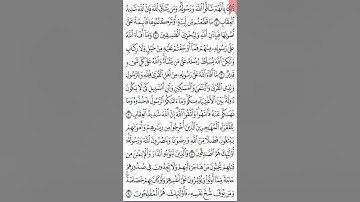 ذَٰلِكَ بِأَنَّهُمْ شَآقُّوا۟ ٱللَّهَ وَرَسُولَهُۥ وَمَن يُشَآقِّ ٱللَّهَ فَإِنَّ ٱللَّهَ شَدِيدُ
ٱلْعِقَابِ ٤ مَا قَطَعْتُم مِّن لِّينَةٍ أَوْ تَرَكْتُمُوهَا قَآئِمَةً عَلَىٰٓ
أُصُولِهَا فَبِإِذْنِ ٱللَّهِ وَلِيُخْزِىَ ٱلْفَـٰسِقِينَ ٥ وَمَآ أَفَآءَ ٱللَّهُ
عَلَىٰ رَسُولِهِۦ مِنْهُمْ فَمَآ أَوْجَفْتُمْ عَلَيْهِ مِنْ خَيْلٍ وَلَا رِكَابٍ
وَلَـٰكِنَّ ٱللَّهَ يُسَلِّطُ رُسُلَهُۥ عَلَىٰ مَن يَشَآءُ وَٱللَّهُ عَلَىٰ كُلِّ شَىْءٍ
قَدِيرٌ ٦ مَّآ أَفَآءَ ٱللَّهُ عَلَىٰ رَسُولِهِۦ مِنْ أَهْلِ ٱلْقُرَىٰ فَلِلَّهِ وَلِلرَّسُولِ
وَلِذِى ٱلْقُرْبَىٰ وَٱلْيَتَـٰمَىٰ وَٱلْمَسَـٰكِينِ وَٱبْنِ ٱلسَّبِيلِ كَىْ لَا يَكُونَ
دُولَةًۢ بَيْنَ ٱلْأَغْنِيَآءِ مِنكُمْ وَمَآ ءَاتَىٰكُمُ ٱلرَّسُولُ فَخُذُوهُ وَمَا
نَهَىٰكُمْ عَنْهُ فَٱنتَهُوا۟ وَٱتَّقُوا۟ ٱللَّهَ إِنَّ ٱللَّهَ شَدِيدُ ٱلْعِقَابِ ٧
لِلْفُقَرَآءِ ٱلْمُهَـٰجِرِينَ ٱلَّذِينَ أُخْرِجُوا۟ مِن دِيَـٰرِهِمْ وَأَمْوَٰلِهِمْ
يَبْتَغُونَ فَضْلًا مِّنَ ٱللَّهِ وَرِضْوَٰنًا وَيَنصُرُونَ ٱللَّهَ وَرَسُولَهُۥٓ
أُو۟لَـٰٓئِكَ هُمُ ٱلصَّـٰدِقُونَ ٨ وَٱلَّذِينَ تَبَوَّءُو ٱلدَّارَ وَٱلْإِيمَـٰنَ مِن
قَبْلِهِمْ يُحِبُّونَ مَنْ هَاجَرَ إِلَيْهِمْ وَلَا يَجِدُونَ فِى صُدُورِهِمْ
حَاجَةً مِّمَّآ أُوتُوا۟ وَيُؤْثِرُونَ عَلَىٰٓ أَنفُسِهِمْ وَلَوْ كَانَ بِهِمْ خَصَاصَةٌ
وَمَن يُوقَ شُحَّ نَفْسِهِۦ فَأُو۟لَـٰٓئِكَ هُمُ ٱلْمُفْلِحُونَ ٩